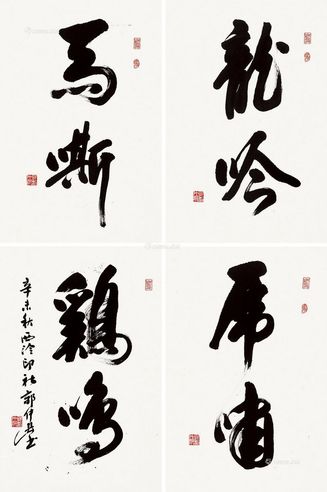 龍吟
虎嘯
馬嘶
鷄鳴
辛未秋西泠印社郭仲選